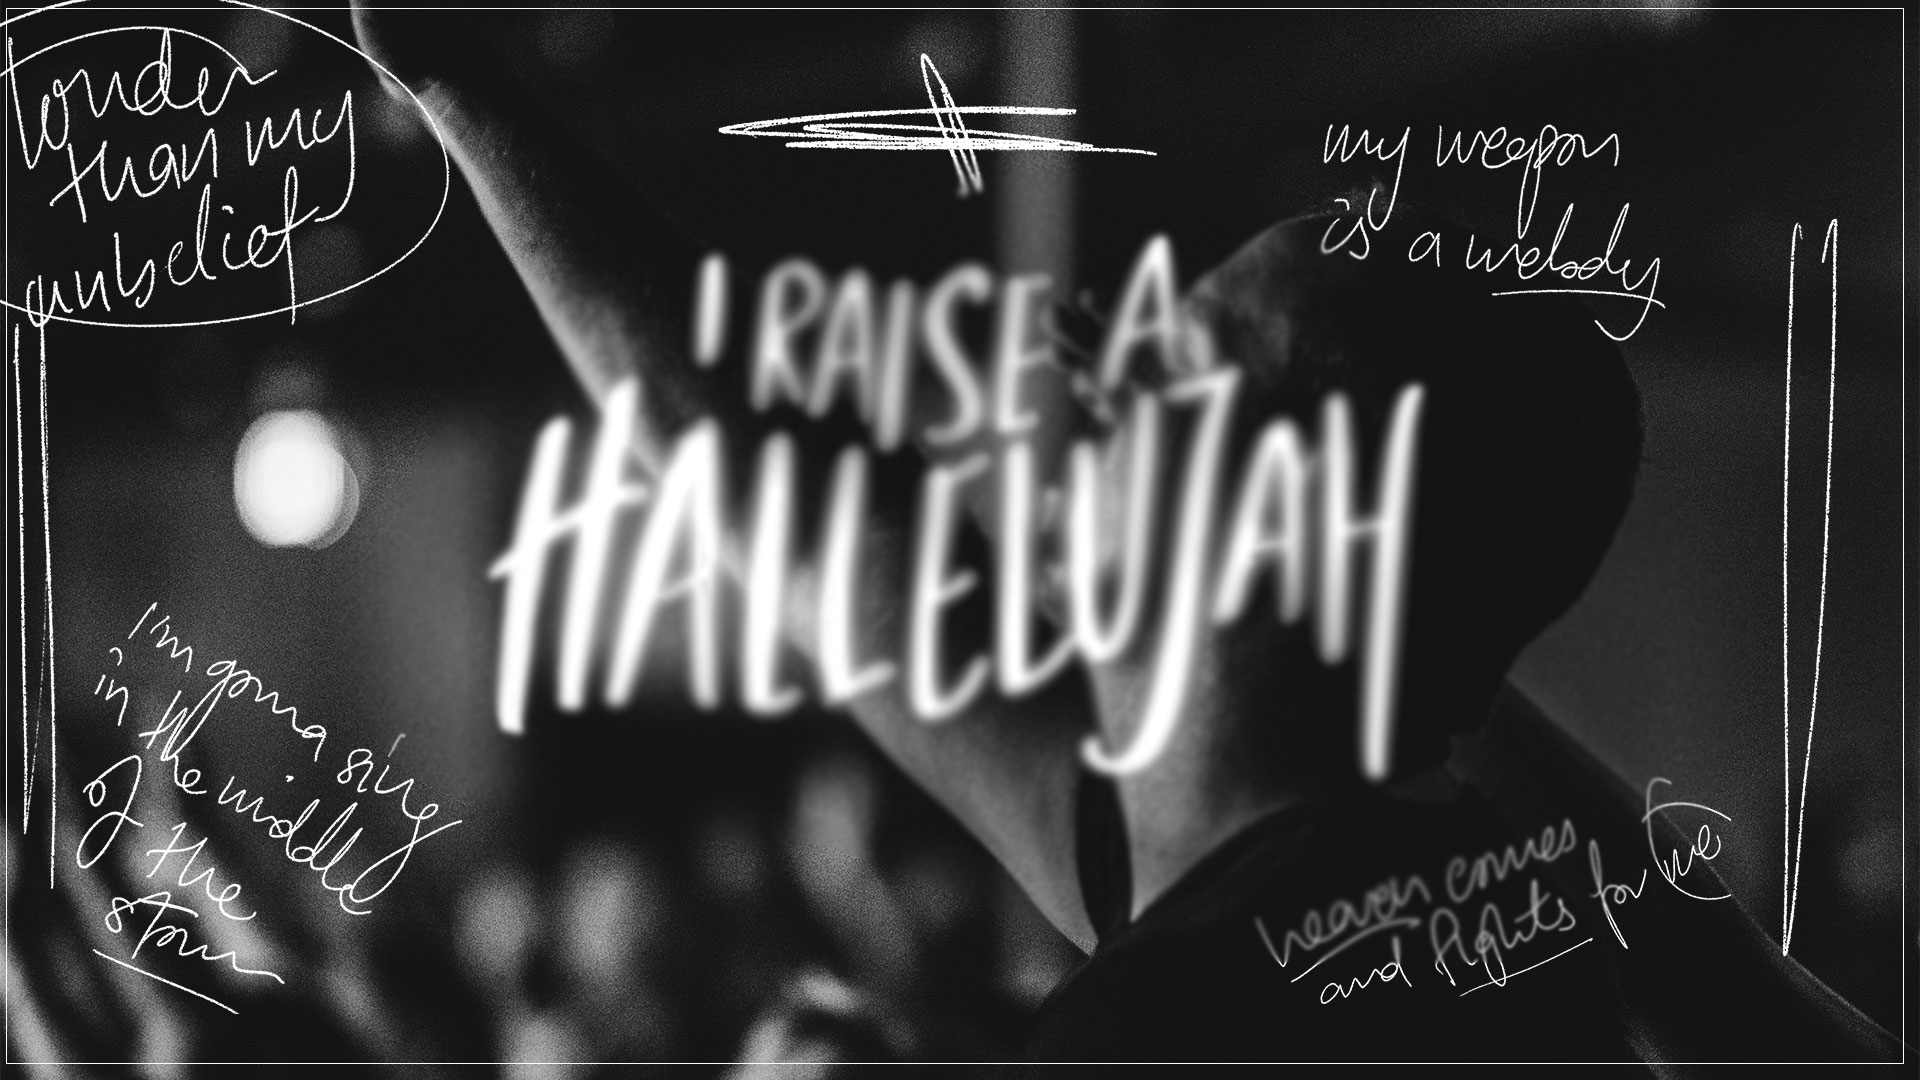 louder
than my
unbelief
my weapon
is a melody
I RAISE A
HALLELUJAH
I'm gonna sing
in the middle
of the
storm
heaven comes
and fights for me